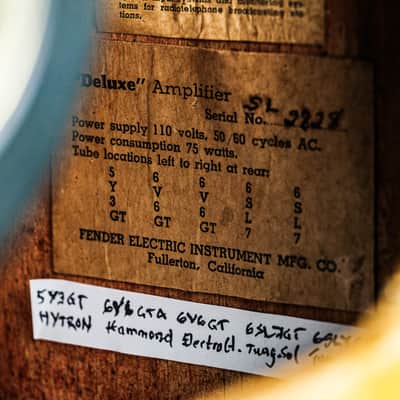 tems for radiotelephone broadcasting sta-
tions.
"Deluxe" Amplifier
Serial No.
Power supply 110 volts, 50/60 cycles AC.
Power consumption 75 watts.
Tube locations left to right at rear:
5 6 6 6 6
Y V V S S
3 6 6 L L
GT GT GT 7 7
FENDER ELECTRIC INSTRUMENT MFG. CO.
Fullerton, California
5Y3GT 6V6GTA 6V6GT 6SL7GT
HYTRON Hammond Tung.Sol